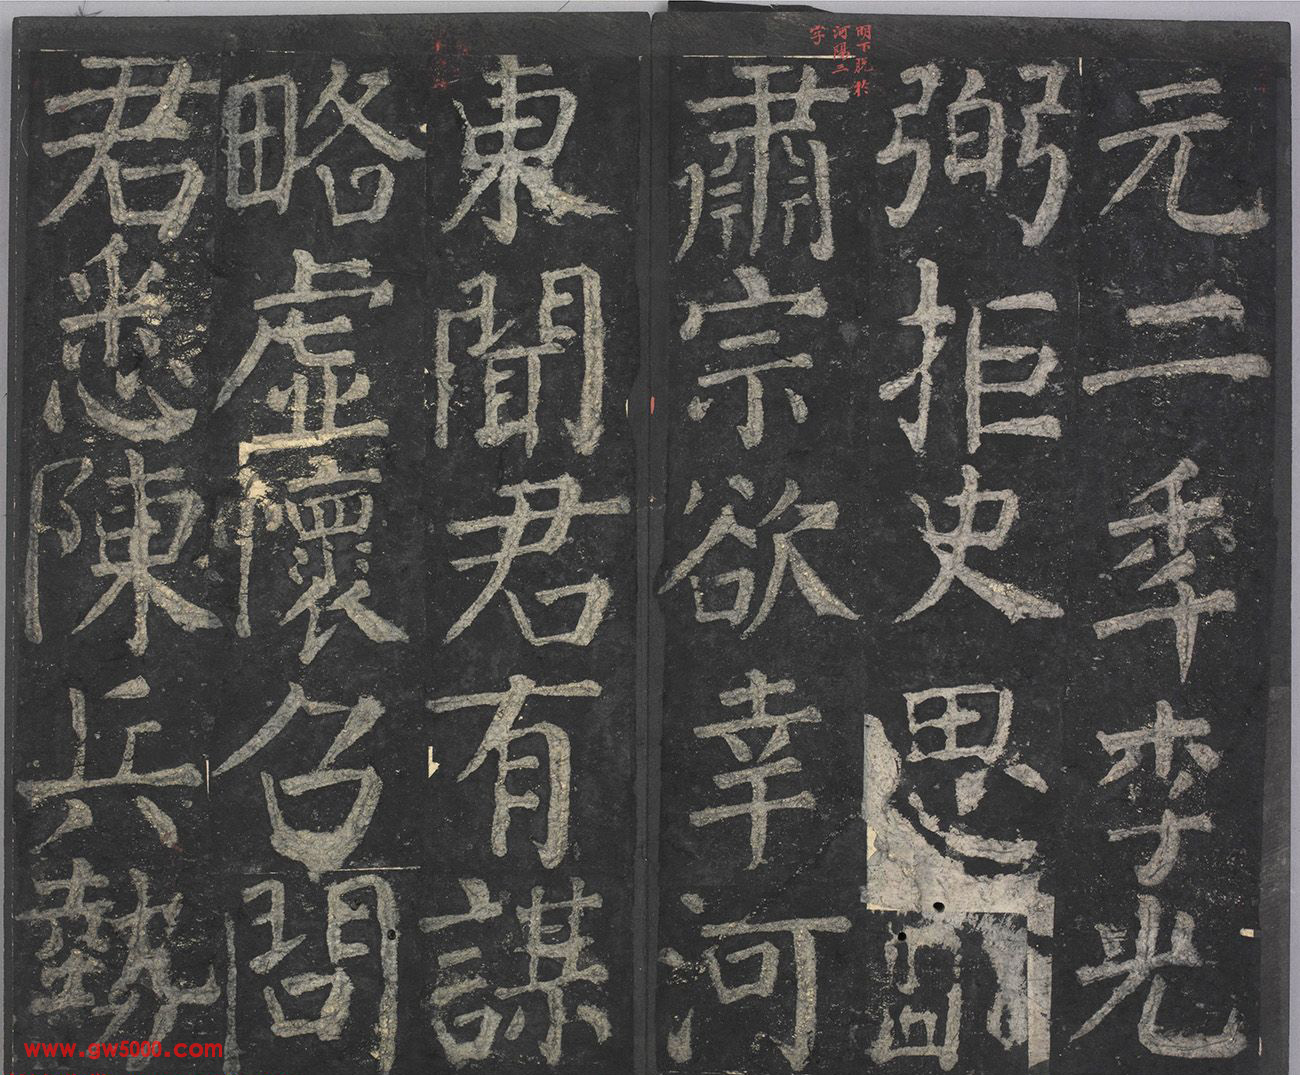 元二秊李光
弼拒史思明
肅宗欲幸河
東聞君有謀
略虛懷召問
君悉陳兵勢
明下脱於
河陽
字
www.gw5000.com